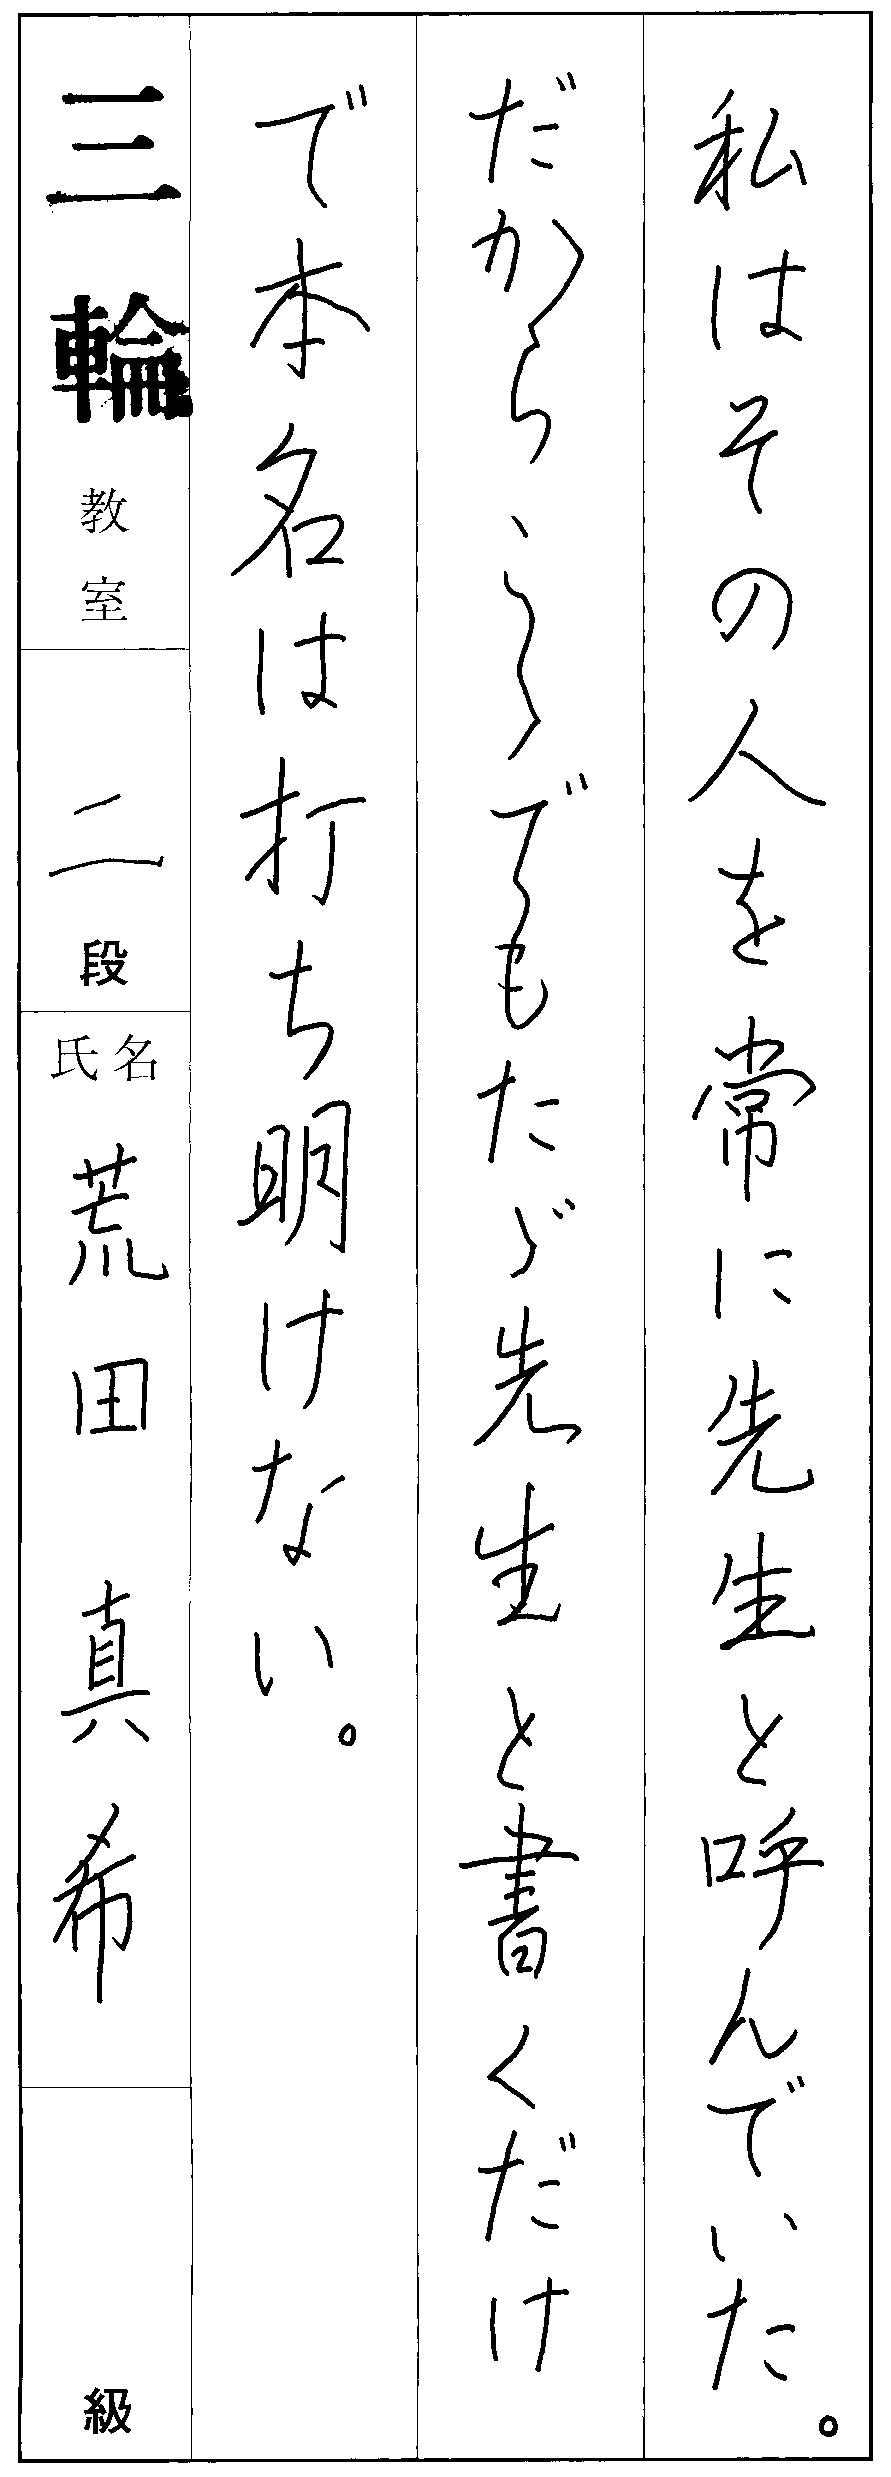 私はその人を常に先生と呼んでいた。
だから、こゝでもたゞ先生と書くだけ
で本名は打ち明けない。
三輪教室
二段
氏名 荒田真希
級